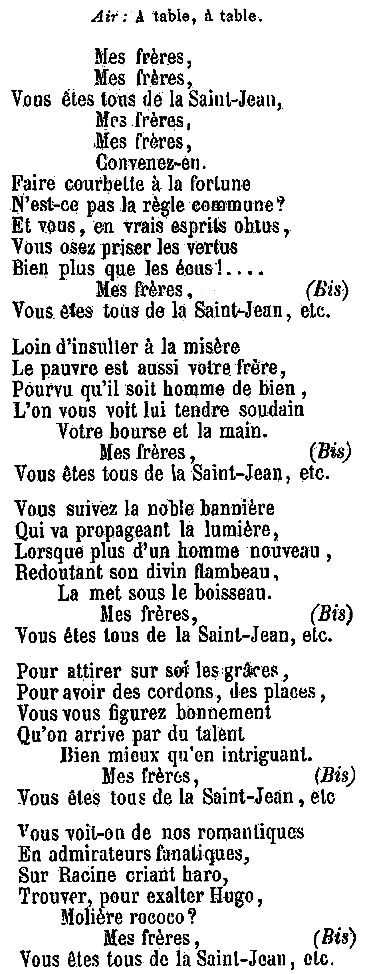 Air : A table, à table.
Mes frères,
Mes frères,
Vous êtes tous de la Saint-Jean,
Mes frères,
Mes frères,
Convenez-en.
Faire courbette à la fortune
N'est-ce pas la règle commune?
Et vous, en vrais esprits obtus,
Vous osez priser les vertus
Bien plus que les écus!....
Mes frères, (Bis)
Vous êtes tous de la Saint-Jean, etc.
Loin d'insulter à la misère
Le pauvre est aussi votre frère,
Pourvu qu'il soit homme de bien,
L'on vous voit lui tendre soudain
Votre bourse et la main.
Mes frères, (Bis)
Vous êtes tous de la Saint-Jean, etc.
Vous suivez la noble bannière
Qui va propageant la lumière,
Lorsque plus d'un homme nouveau,
Redoutant son divin flambeau,
La met sous le boisseau.
Mes frères, (Bis)
Vous êtes tous de la Saint-Jean, etc.
Pour attirer sur soi les grâces,
Pour avoir des cordons, des places,
Vous vous figurez bonnement
Qu'on arrive par du talent
Bien mieux qu'en intriguant.
Mes frères, (Bis)
Vous êtes tous de la Saint-Jean, etc
Vous voit-on de nos romantiques
En admirateurs fanatiques,
Sur Racine criant haro,
Trouver, pour exalter Hugo,
Molière rococo?
Mes frères, (Bis)
Vous êtes tous de la Saint-Jean, etc.